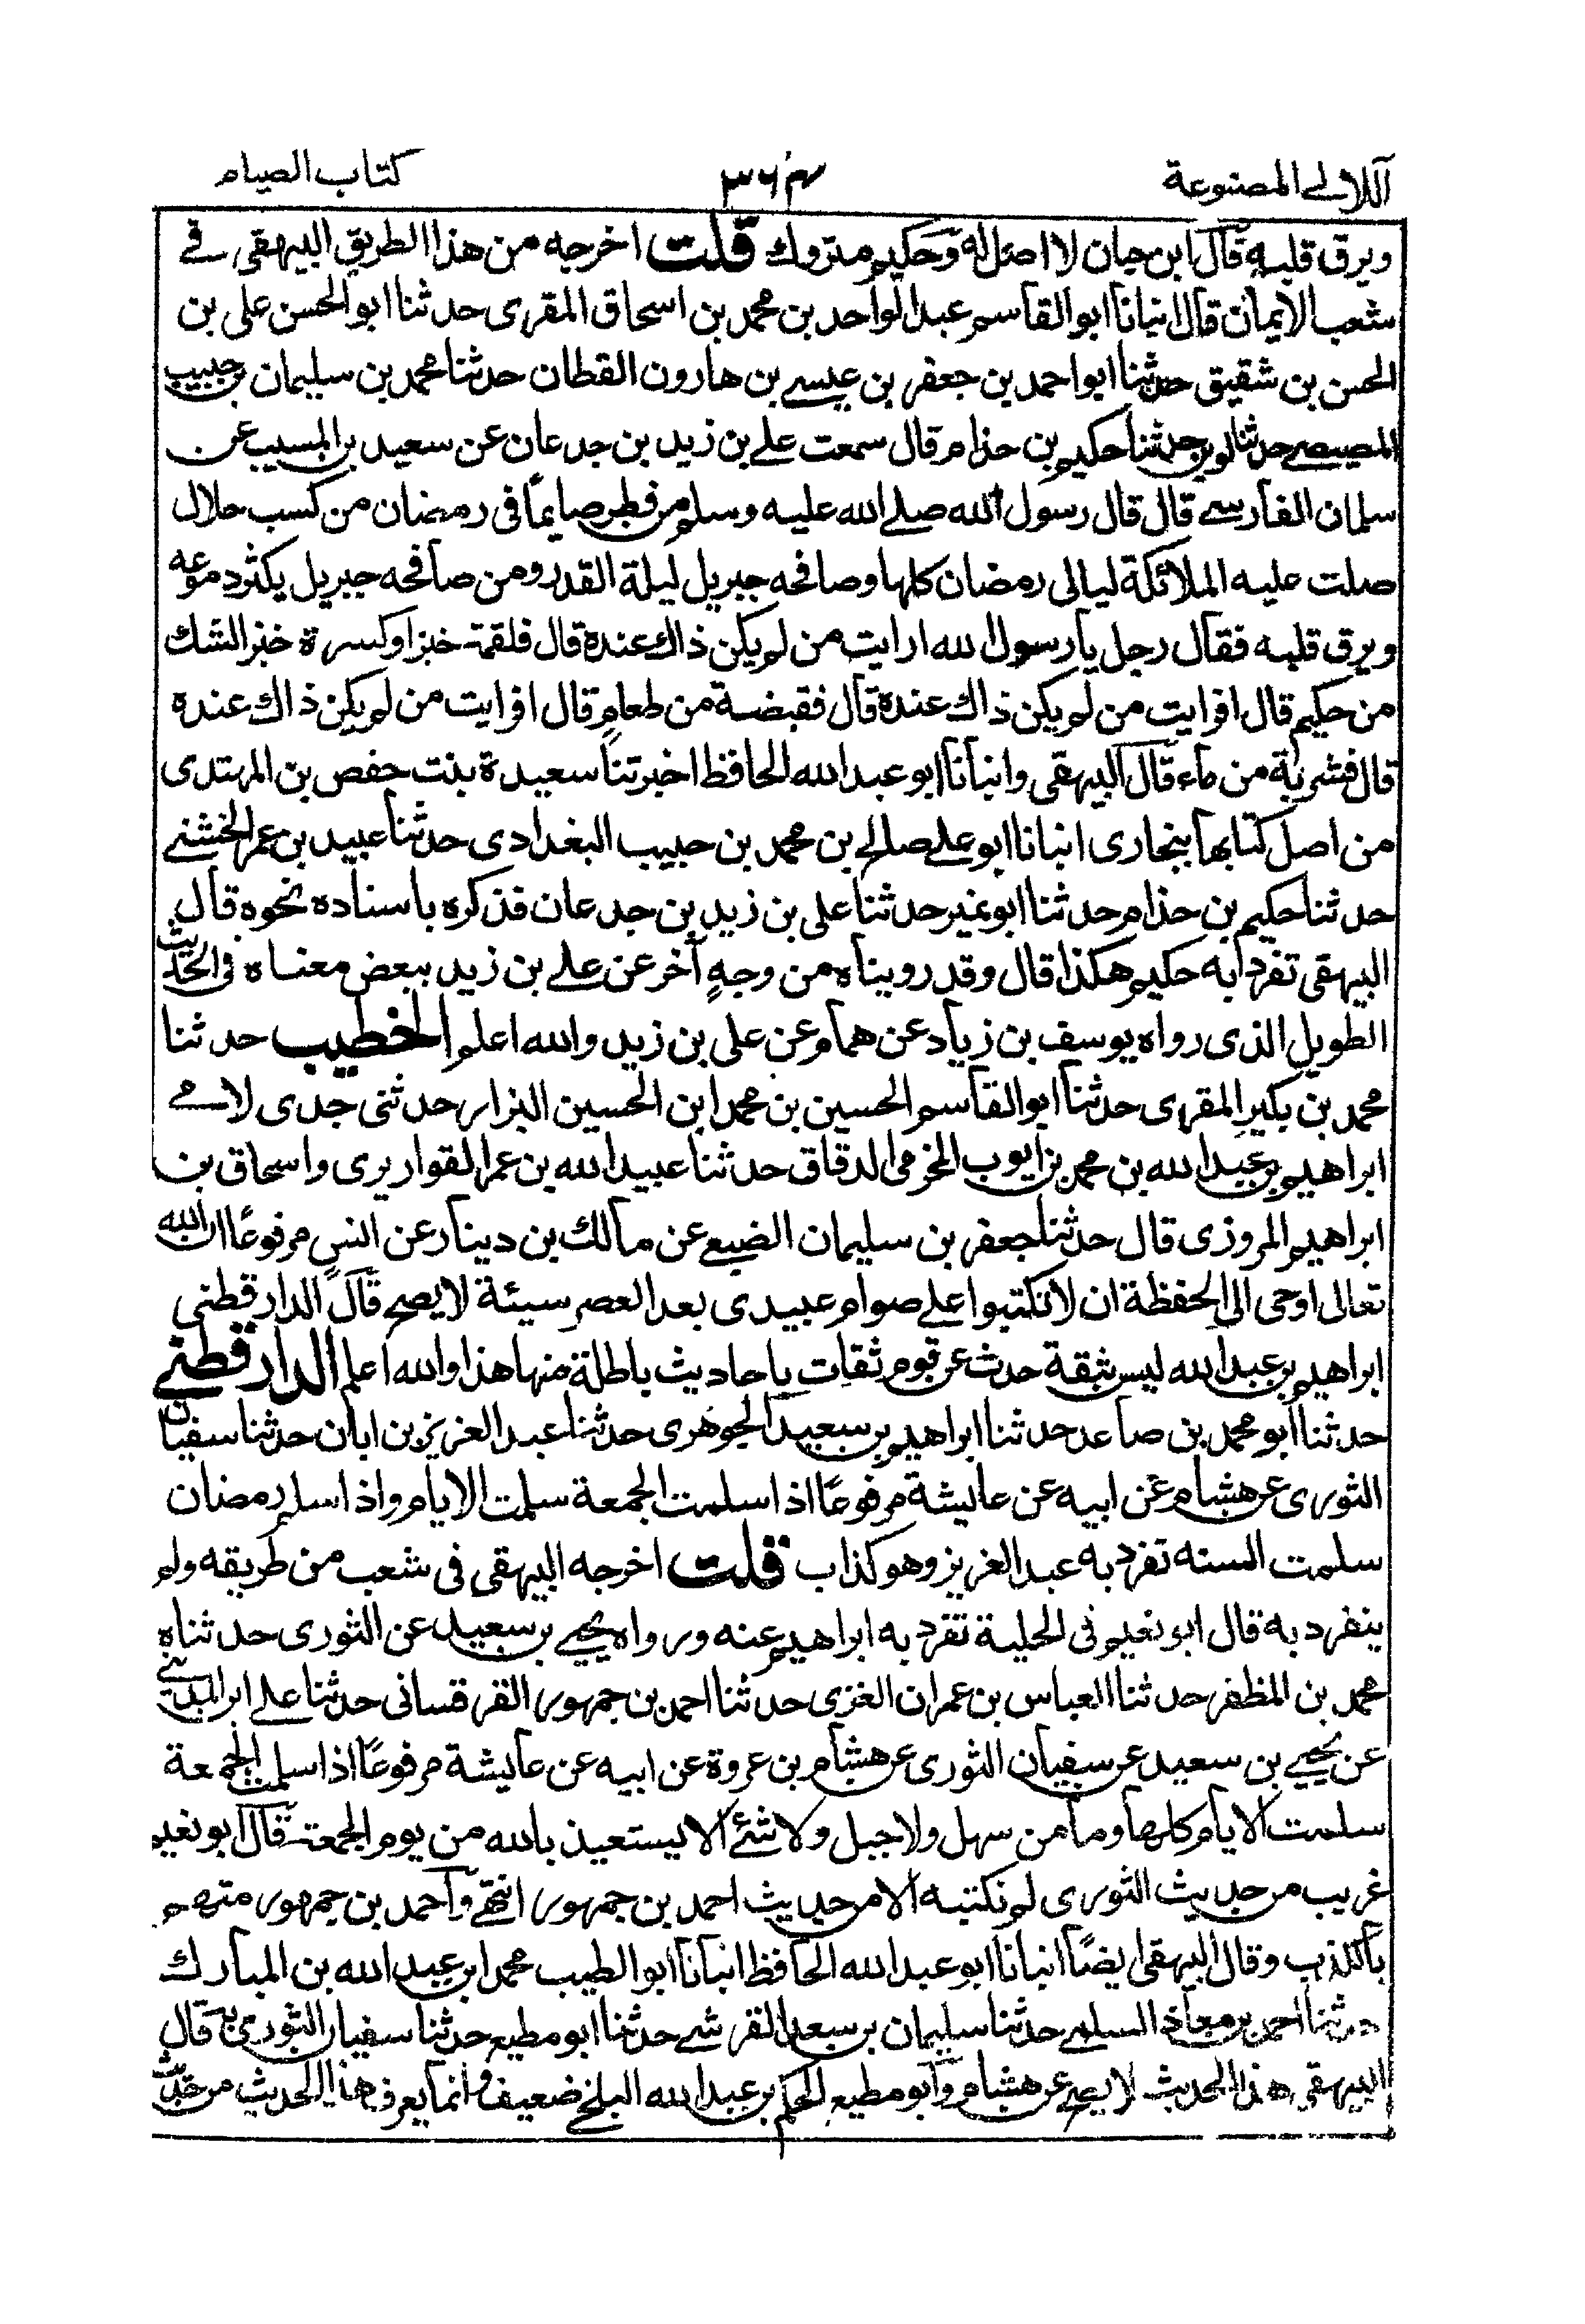 اللآلے المصنوعة
۳۶۴
كتاب الصيام
ويرق قلبه قال ابن حبان لا اصل له وحكيم متروك قلت اخرجه من هذا الطريق البيهقى فے
شعب الايمان قال انبانا ابو القاسم عبد الواحد بن محمد بن اسحاق المقرى حدثنا ابو الحسن على بن
الحسن بن شقيق حدثنا ابو احمد بن جعفر بن عيسے بن هارون القطان حدثنا محمد بن سليمان بن حبيب
المصيصے حدثنا لوين حدثنا حكيم بن حذام قال سمعت علے بن زيد بن جدعان عن سعيد بن المسيب عن
سلمان الفارسے قال قال رسول الله صلے الله عليه وسلم من فطر صايما فى رمضان من كسب حلال
صلت عليه الملائكة ليالى رمضان كلها وصافحه جبريل ليلة القدر ومن صافحه جبريل يكثر دموعه
ويرق قلبه فقال رجل يا رسول الله ارايت من لم يكن ذاك عنده قال فلقمة خبز او كسرة خبز الشك
من حكيم قال افرايت من لم يكن ذاك عنده قال فقبضة من طعام قال افرايت من لم يكن ذاك عنده
قال فشربة من ماء قال البيهقى وانبانا ابو عبد الله الحافظ اخبرتنا سعيدة بنت حفص بن المهتدى
من اصل كتابها ببخارى انبانا ابو علے صالح بن محمد بن حبيب البغدادى حدثنا عبيد بن عمر الخشنے
حدثنا حكيم بن حذام حدثنا ابو نمير حدثنا على بن زيد بن جدعان فذكره باسناده نحوه قال
البيهقى تفرد به حكيم هكذا قال وقد رويناه من وجهٍ آخر عن علے بن زيد ببعض معناه فى الحديث
الطويل الذى رواه يوسف بن زياد عن همام عن على بن زيد والله اعلم الخطيب حدثنا
محمد بن بكير المقرى حدثنا ابو القاسم الحسين بن محمد ابن الحسين البزار حدثنى جدى لامے
ابراهيم بن عبد الله بن محمد بن ايوب المخرمى الدقاق حدثنا عبيد الله بن عمر القواريرى واسحاق بن
ابراهيم المروزى قال حدثنا جعفر بن سليمان الضبعے عن مالك بن دينار عن انس مرفوعًا ان الله
تعالى اوحى الى الحفظة ان لا تكتبوا على صوام عبيدى بعد العصر سيئة لا يصح قال الدارقطنى
ابراهيم بن عبد الله ليس بثقة حدث عن قوم ثقات باحاديث باطلة منها هذا والله اعلم الدارقطنے
حدثنا ابو محمد بن صاعد حدثنا ابراهيم بن سعيد الجوهرى حدثنا عبد العزيز بن ابان حدثنا سفيان
الثورى عن هشام عن ابيه عن عايشة مرفوعًا اذا سلمت الجمعة سلمت الايام واذا سلم رمضان
سلمت السنه تفرد به عبد العزيز وهو كذاب قلت اخرجه البيهقى فى شعب من طريقه ولم
ينفرد به قال ابو نعيم فى الحلية تفرد به ابراهيم عنه ورواه يحيے بن سعيد عن الثورى حدثناه
محمد بن المظفر حدثنا العباس بن عمران الغزى حدثنا احمد بن جمهور القرقسانى حدثنا علے ابن المدينے
عن يحيے بن سعيد عن سفيان الثورى عن هشام بن عروة عن ابيه عن عايشة مرفوعًا اذا سلمت الجمعة
سلمت الايام كلها وما من سهل ولا جبل ولا شئ الا يستعيذ بالله من يوم الجمعة قال ابو نعيم
غريب من حديث الثورى لم نكتبه الا من حديث احمد بن جمهور انتهے واحمد بن جمهور متهم
بالكذب وقال البيهقى ايضًا انبانا ابو عبد الله الحافظ انبانا ابو الطيب محمد ابن عبد الله بن المبارك
حدثنا احمد بن معاذ السلمے حدثنا سليمان بن سعد القرشے حدثنا ابو مطيع حدثنا سفيان الثورى به قال
البيهقى هذا الحديث لا يصح عن هشام وابو مطيع الحكم بن عبد الله البلخے ضعيف وانما يعرف هذا الحديث من حديث